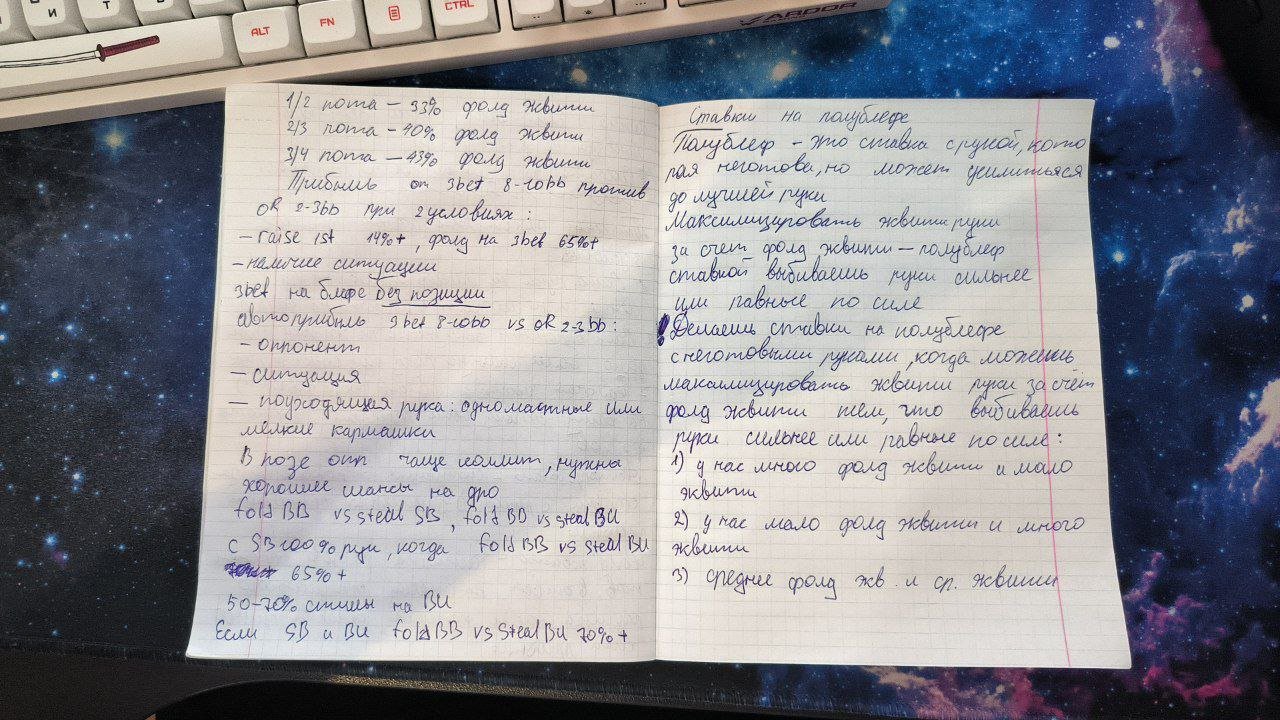 И
Т
ALT
FN
CTRL
ARDOR
1/2 пота — 33% фолд жвити
2/3 пота - 40% фолд жвити
3/4 пота — 43% фолд жвити
Прибыль от 3bet 8-10bb против
OR 2-3bb при 2 условиях:
- raise 1st 14%+, фолд на 3bet 65%+
- наличие ситуации
3bet на блефе без позиции
автоприбыль 3bet 8-10bb vs OR 2-3bb:
- оппонент
- ситуация
— подходящая рука: одномастные или
мелкие кармашки
В позе опп чаще коллит, нужны
хорошие шансы на дро
fold BB vs steal SB, fold BB vs steal BU
с SB 100% рук, когда fold BB vs steal BU
65%+
50-70% стилы на BU
Если SB и BU fold BB vs Steal BU 70%+
Ставки на полублефе
Полублеф - это ставка с рукой, кото
рая неготова, но может усилиться
до лучшей руки
Максимизировать жвити руки
за счет фолд жвити — полублеф
ставкой выбиваешь руки сильнее
или равные по силе
! Делаешь ставки на полублефе
с неготовыми руками, когда можешь
максимизировать жвити руки за счёт
фолд жвити тем, что выбиваешь
руки сильнее или равные по силе:
1) у нас много фолд жвити и мало
жвити
2) у нас мало фолд жвити и много
жвити
3) среднее фолд жв. и ср. жвити